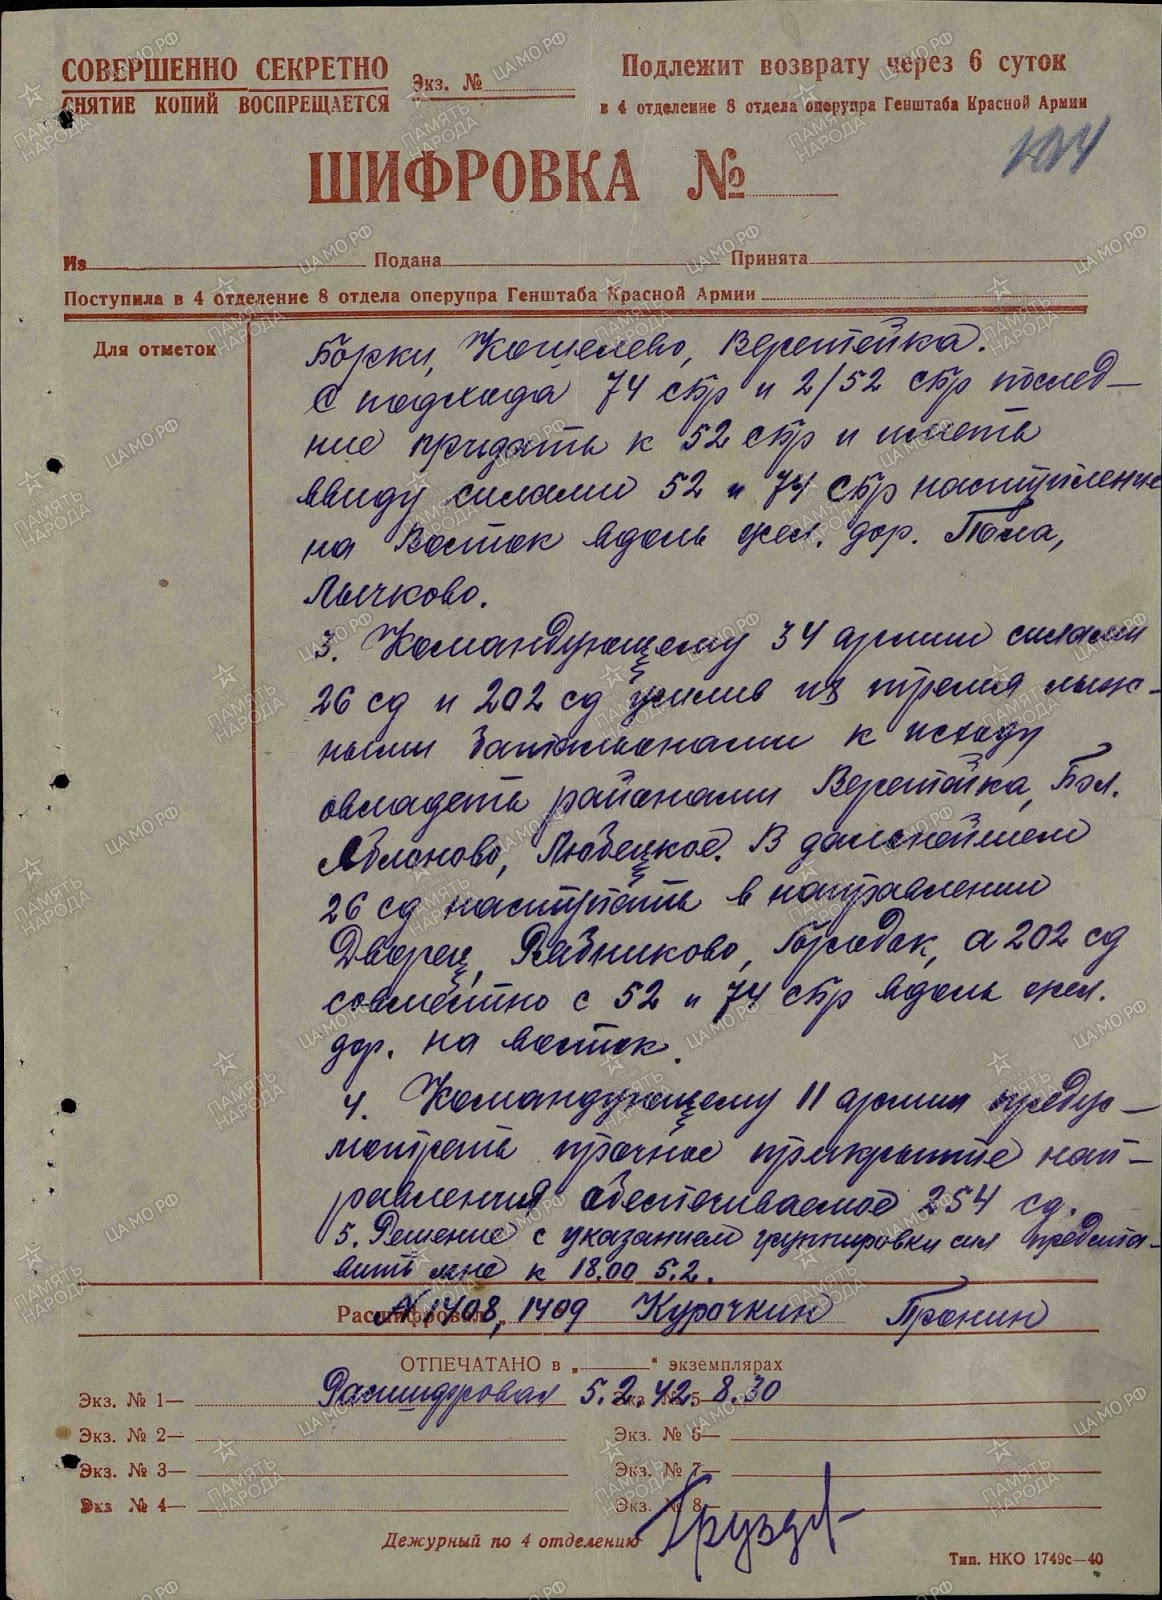 СОВЕРШЕННО СЕКРЕТНО
СНЯТИЕ КОПИЙ ВОСПРЕЩАЕТСЯ
Экз. №
Подлежит возврату через 6 суток
в 4 отделение 8 отдела оперупра Генштаба Красной Армии
ШИФРОВКА №
Из Подана Принята
Поступила в 4 отделение 8 отдела оперупра Генштаба Красной Армии
Для отметок
Борки, Кошелево, Веретейка.
С подхода 74 сбр и 2/52 сбр послед-
ние придать к 52 сбр и иметь
ввиду силами 52 и 74 сбр наступление
на Восток вдоль жел. дор. Пола,
Лычково.
3. Командующему 34 армии силами
26 сд и 202 сд усилив их тремя лыж-
ными батальонами к исходу
овладеть районами Веретейка, Бол.
Яблоново, Любецкое. В дальнейшем
26 сд наступать в направлении
Дворец, Рябчиково, Городок, а 202 сд
совместно с 52 и 74 сбр вдоль жел.
дор. на восток.
4. Командующему 11 армии предус-
мотреть прочное прикрытие нап-
равления обеспечиваемое 254 сд.
5. Решение с указанием группировки сил предста-
вить мне к 18.00 5.2.
Расшифровал
№ 1408, 1409 Курочкин Пронин
ОТПЕЧАТАНО в „ “ экземплярах
Расшифровал 5.2.42 8.30
Экз. № 1— Экз. № 5—
Экз. № 2— Экз. № 6—
Экз. № 3— Экз. № 7—
Экз № 4— Экз. № 8—
Дежурный по 4 отделению
Груздев
Тип. НКО 1749с—40
ПАМЯТЬ НАРОДА
ЦАМО.РФ